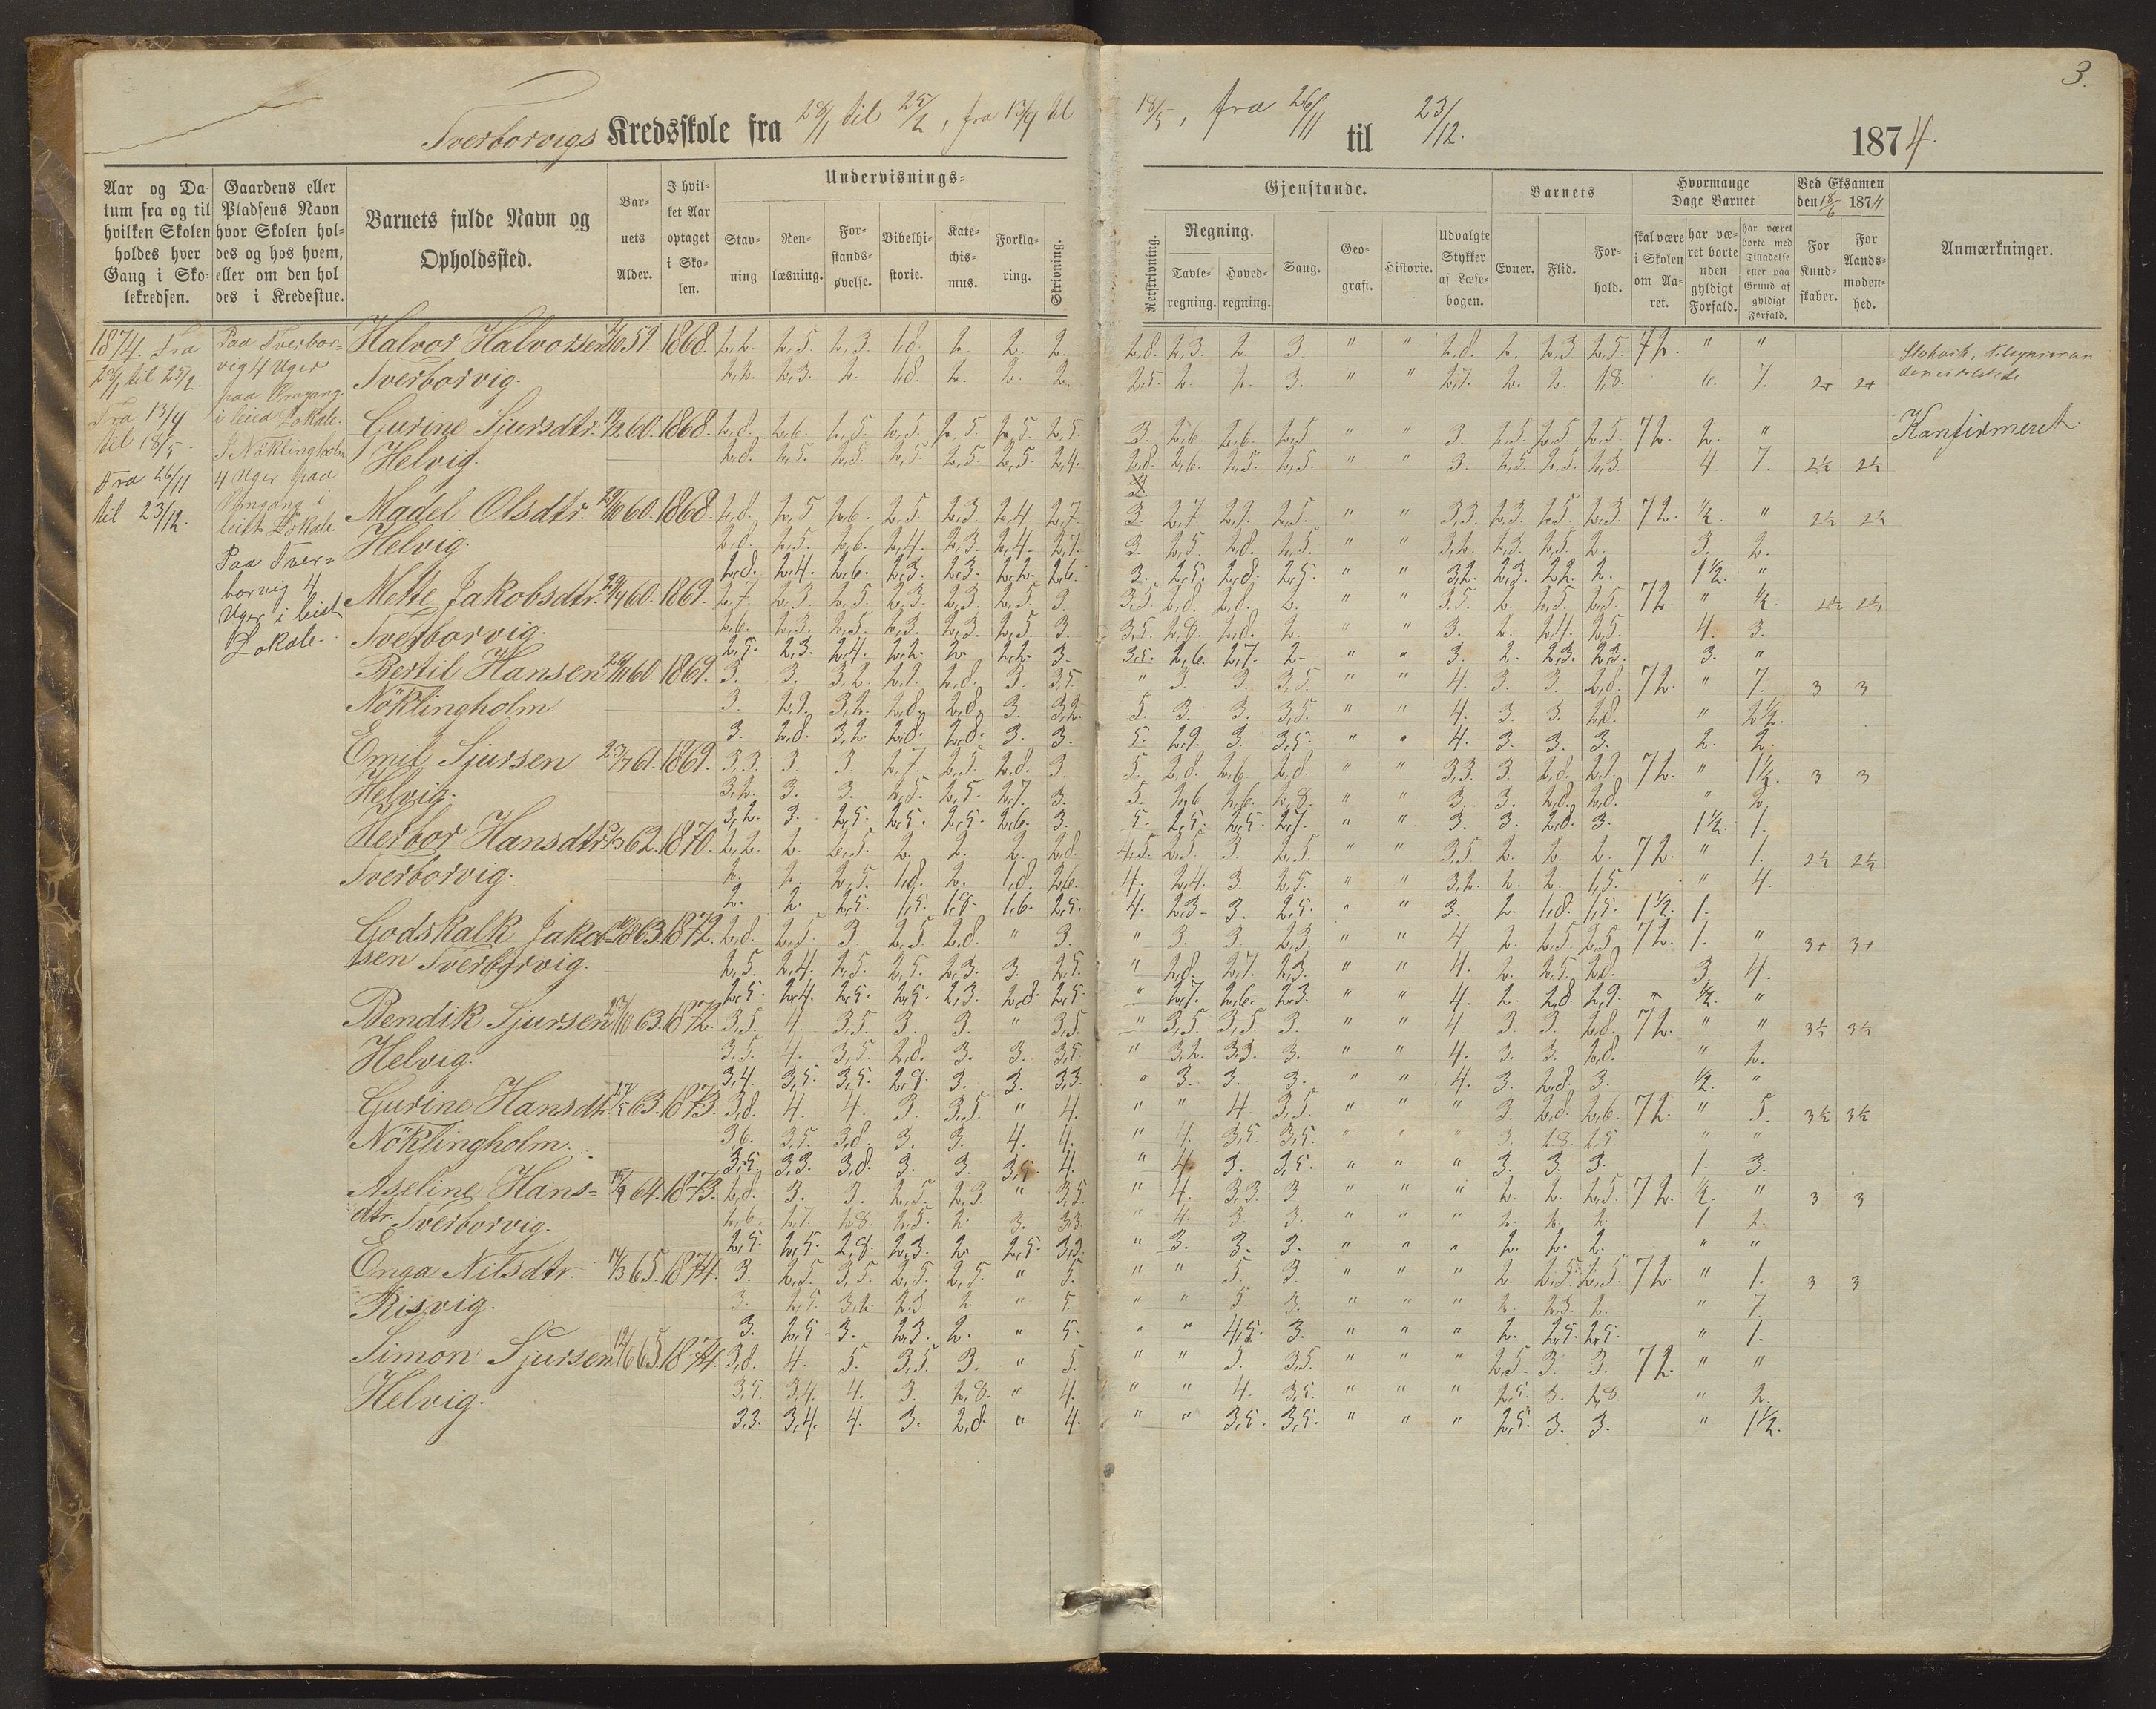 3.
Tverborvigs Kredsskole fra 28/1 til 25/2, fra 13/4 til
18/5, fra 26/11 til 23/12. 1874.
Aar og Da-
tum fra og til
hvilken Skolen
holdes hver
Gang i Sko-
lekredsen.
Gaardens eller
Pladsens Navn
hvor Skolen hol-
des og hos hvem,
eller om den hol-
des i Kredsstue.
Barnets fulde Navn og
Opholdssted.
Bar-
nets
Alder.
I hvil-
ket Aar
optaget
i Sko-
len.
Undervisnings-
Stav-
ning
Ren-
læsning.
For-
stands-
øvelse.
Bibelhi-
storie.
Kate-
chis-
mus.
Forkla-
ring.
Skrivning.
Gjenstande.
Retskrivning.
Regning.
Tavle-
regning.
Hoved-
regning.
Sang.
Geo-
grafi.
Historie.
Udvalgte
Stykker
af Læse-
bogen.
Barnets
Evner.
Flid.
For-
hold.
Hvormange
Dage Barnet
skal være
i Skolen
om Aa-
ret.
har væ-
ret borte
uden
gyldigt
Forfald.
har været
borte med
Tilladelse
eller paa
Grund af
gyldigt
Forfald.
Ved Eksamen
den 18/6 1874
For
Kund-
skaber.
For
Aands-
moden-
hed.
Anmærkninger.
1874. Fra
28/1 til 25/2.
Fra 13/4
til 18/5.
Fra 26/11
til 23/12.
Paa Tverbor-
vig 4 Uger
paa Omgang
i leiet Lokale.
I Nöklingholm
4 Uger paa
Omgang i
leiet Lokale.
Paa Tver-
borvig 4
Uger i leiet
Lokale.
Halvor Halvorsen 59. 1868. 2,2. 2,5 2,3 1,8. 2. 2. 2. 2,8. 2,3. 2. 3 " " 2,8. 2. 2,3. 2,5. 72. " "
Tverborvig. 2,2. 2,3. 2. 1,8. 2. 2. 2. 2,5. 2. 2. 3. " " 2,7. 2. 2. 1,8. " 7. 2+ 2+
Gurine Sjursdtr. 60. 1868. 2,8. 2,6. 2,5 2,5 2,5 2,5 2,5 3. 2,6. 2,6. 2,5. " " 3. 2,5. 2,5. 2,5 72. 2. " Konfirmeret.
Helvig. 2,8. 2,5 2,5. 2,5 2,5. 2,5. 2,4. 2,8. 2,6. 2,5. 2,5. " " 3. 2,5 2,5. 2,3. 4. 7. 2½ 2½
Madel Olsdtr. 60. 1868. 2,8. 2,5 2,6. 2,5 2,3. 2,4 2,7. 3. 2,7 2,9. 2,5. " " 3,3. 2,3. 2,5 2,3. 72. ½. " 2½ 2½
Helvig. 2,8. 2,5. 2,6. 2,4. 2,3. 2,4. 2,7. 3. 2,5. 2,8. 2,5. " " 3,2. 2,3. 2,5 2. 3. 2.
2,8. 2,4. 2,6. 2,3. 2,3. 2,2. 2,6. 3. 2,5. 2,8. 2,5. " " 3,2. 2,3. 2,2. 2. 1½. "
Mette Jakobsdtr. 60. 1869. 2,7. 2,3 2,5 2,3. 2,3. 2,5 3. 3,5 2,8. 2,8. 2. " " 3,5. 2. 2,5 2,5. 72. " ½. 2½ 2½
Tverborvig. 2,6. 2,3. 2,5. 2,3. 2,3. 2,5 3. 3,5. 2,8. 2,8. 2. " " 3. 2. 2,4. 2,5. 4. 3.
2,5. 2,3. 2,4. 2,2. 2. 2,2. 3. 3,5. 2,6. 2,7. 2. " " 3. 2. 2,3. 2,3. 3. "
Bertil Hansen 60. 1869. 3. 3. 3,2. 2,9. 2,8. 3. 3,5. " 3. 3. 3,5. " " 4. 3. 3. 2,8. 72. " 7. 3 3
Nöklingholm. 3. 2,9. 3,2. 2,8. 2,8. 3. 3,2. 5. 3. 3. 3,5. " " 4. 3. 3. 2,8. " 2½.
3. 2,8. 3,2. 2,8. 2,8. 3. 3. 5. 2,9. 3. 3,5. " " 4. 3. 3. 3. 2. 2.
Emil Sjursen 23/7 61. 1869. 3,3. 3. 3. 2,7. 2,5. 2,8. 3. 5. 2,8. 2,6. 2,8. " " 3,3. 3. 2,8. 2,9. 72. " 1½. 3 3
Helvig. 3,2. 3. 3. 2,5. 2,5. 2,7. 3. 5. 2,6 2,6. 2,8. " " 3. 3. 2,8. 2,8. " 2.
3,2. 3. 2,5. 2,5. 2,5. 2,6. 3. 5. 2,5. 2,5. 2,7. " " 3. 3. 2,8. 3. 1½. 1.
Herbor Hansdtr. 62. 1870. 2,2. 2. 2,5. 2. 2. 2. 2,8. 4,5. 2,5 3. 2,5. " " 3,5 2. 2. 2. 72. " 1. 2½ 2½
Tverborvig. 2. 2. 2,5. 1,8. 2. 1,8. 2,6. 4. 2,4. 3. 2,5. " " 3,2. 2. 2. 1,5. " 4.
2. 2. 2,5. 1,5. 1,8. 1,6. 2,5. 4. 2,3. 3. 2,5. " " 3. 2. 1,8. 1,5. 1½. 1.
Godskalk Jakob- 63. 1872. 2,8. 2,5. 3. 2,5 2,8. " 3. " 3. 3. 2,3. " " 4. 2. 2,5. 2,5 72. 1. " 3+ 3+
sen Tverborvig. 2,5. 2,4. 2,5. 2,5. 2,3. 3. 2,5. " 2,8. 2,7. 2,3. " " 4. 2. 2,5. 2,8. 3. 4.
2,5. 2,4. 2,5. 2,5. 2,3. 2,8. 2,5 " 2,7. 2,6. 2,3. " " 4. 2. 2,8. 2,9. " ½. "
Bendik Sjursen 63. 1872. 3,5. 4. 3,5. 3. 3. " 3,5. " 3,5. 3,5. 3. " " 4. 3. 3. 2,8. 72. " " 3½ 3½
Helvig. 3,5. 4. 3,5. 2,8. 3. 3. 3,5. " 3,2. 3,3. 3. " " 4. 3. 3. 2,8. " 2.
3,4. 3,5. 3,5. 2,8. 3. 3. 3,3. " 3. 3. 3. " " 4. 3. 2,8. 3. ½. "
Gurine Hansdtr. 63. 1873. 3,8. 4. 4. 3. 3,5. " 4. " " 4. 3,5. " " " 3. 2,8. 2,6. 72. " 5. 3½ 3½
Nöklingholm. 3,6. 3,5. 3,8. 3. 3. 4. 4. " 4. 3,5. 3,5. " " " 3. 2,8. 2,5. " "
3,5. 3,3. 3,8. 3. 3. 3,5. 4. " 4. 3. 3,5. " " " 3. 3. 3. 1. 3.
Aseline Hans- 64. 1873. 2,8. 3. 3. 2,5. 2,3. " 3,5. " 4. 3,3. 3. " " " 2. 2. 2,5. 72. ½. " 3 3
dtr. Tverborvig. 2,6. 2,7. 2,8. 2,5. 2. 3. 3,3. " 4. 3. 3. " " " 2. 2. 2. 1. 2.
2,5. 2,5. 2,8. 2,3. 2. 2,5. 3,3. " 3. 3. 3. " " " 2. 2. 2. " "
Enga Nilsdtr. 65. 1874. 3. 2,5. 3,5. 2,5. 2,5. " 5. " " 5. 3. " " " 2. 2,5. 2,5. 72. " 1. 3 3
Risvig. 3. 2,5. 3,2. 2,3. 2. " 5. " " 5. 3. " " " 2. 2,3. 2. " 7.
3. 2,5. 3. 2,3. 2. " 5. " " 4,5. 3. " " " 2. 2,5. 2,5. " 1.
Simon Sjursen 65. 1874. 3,8. 4. 5. 3,5. 3. " 5. " " 5. 3,5. " " " 2,5. 3. 3. 72. " "
Helvig. 3,5. 3,4. 4. 3. 2,8. " 4. " " 4. 3,5. " " " 2,5. 3. 2,8. " 2.
3,3. 3,4. 4. 3. 2,8. " 4. " " 3,5. 3,5. " " " 2,5. 3. 3. " 1½.